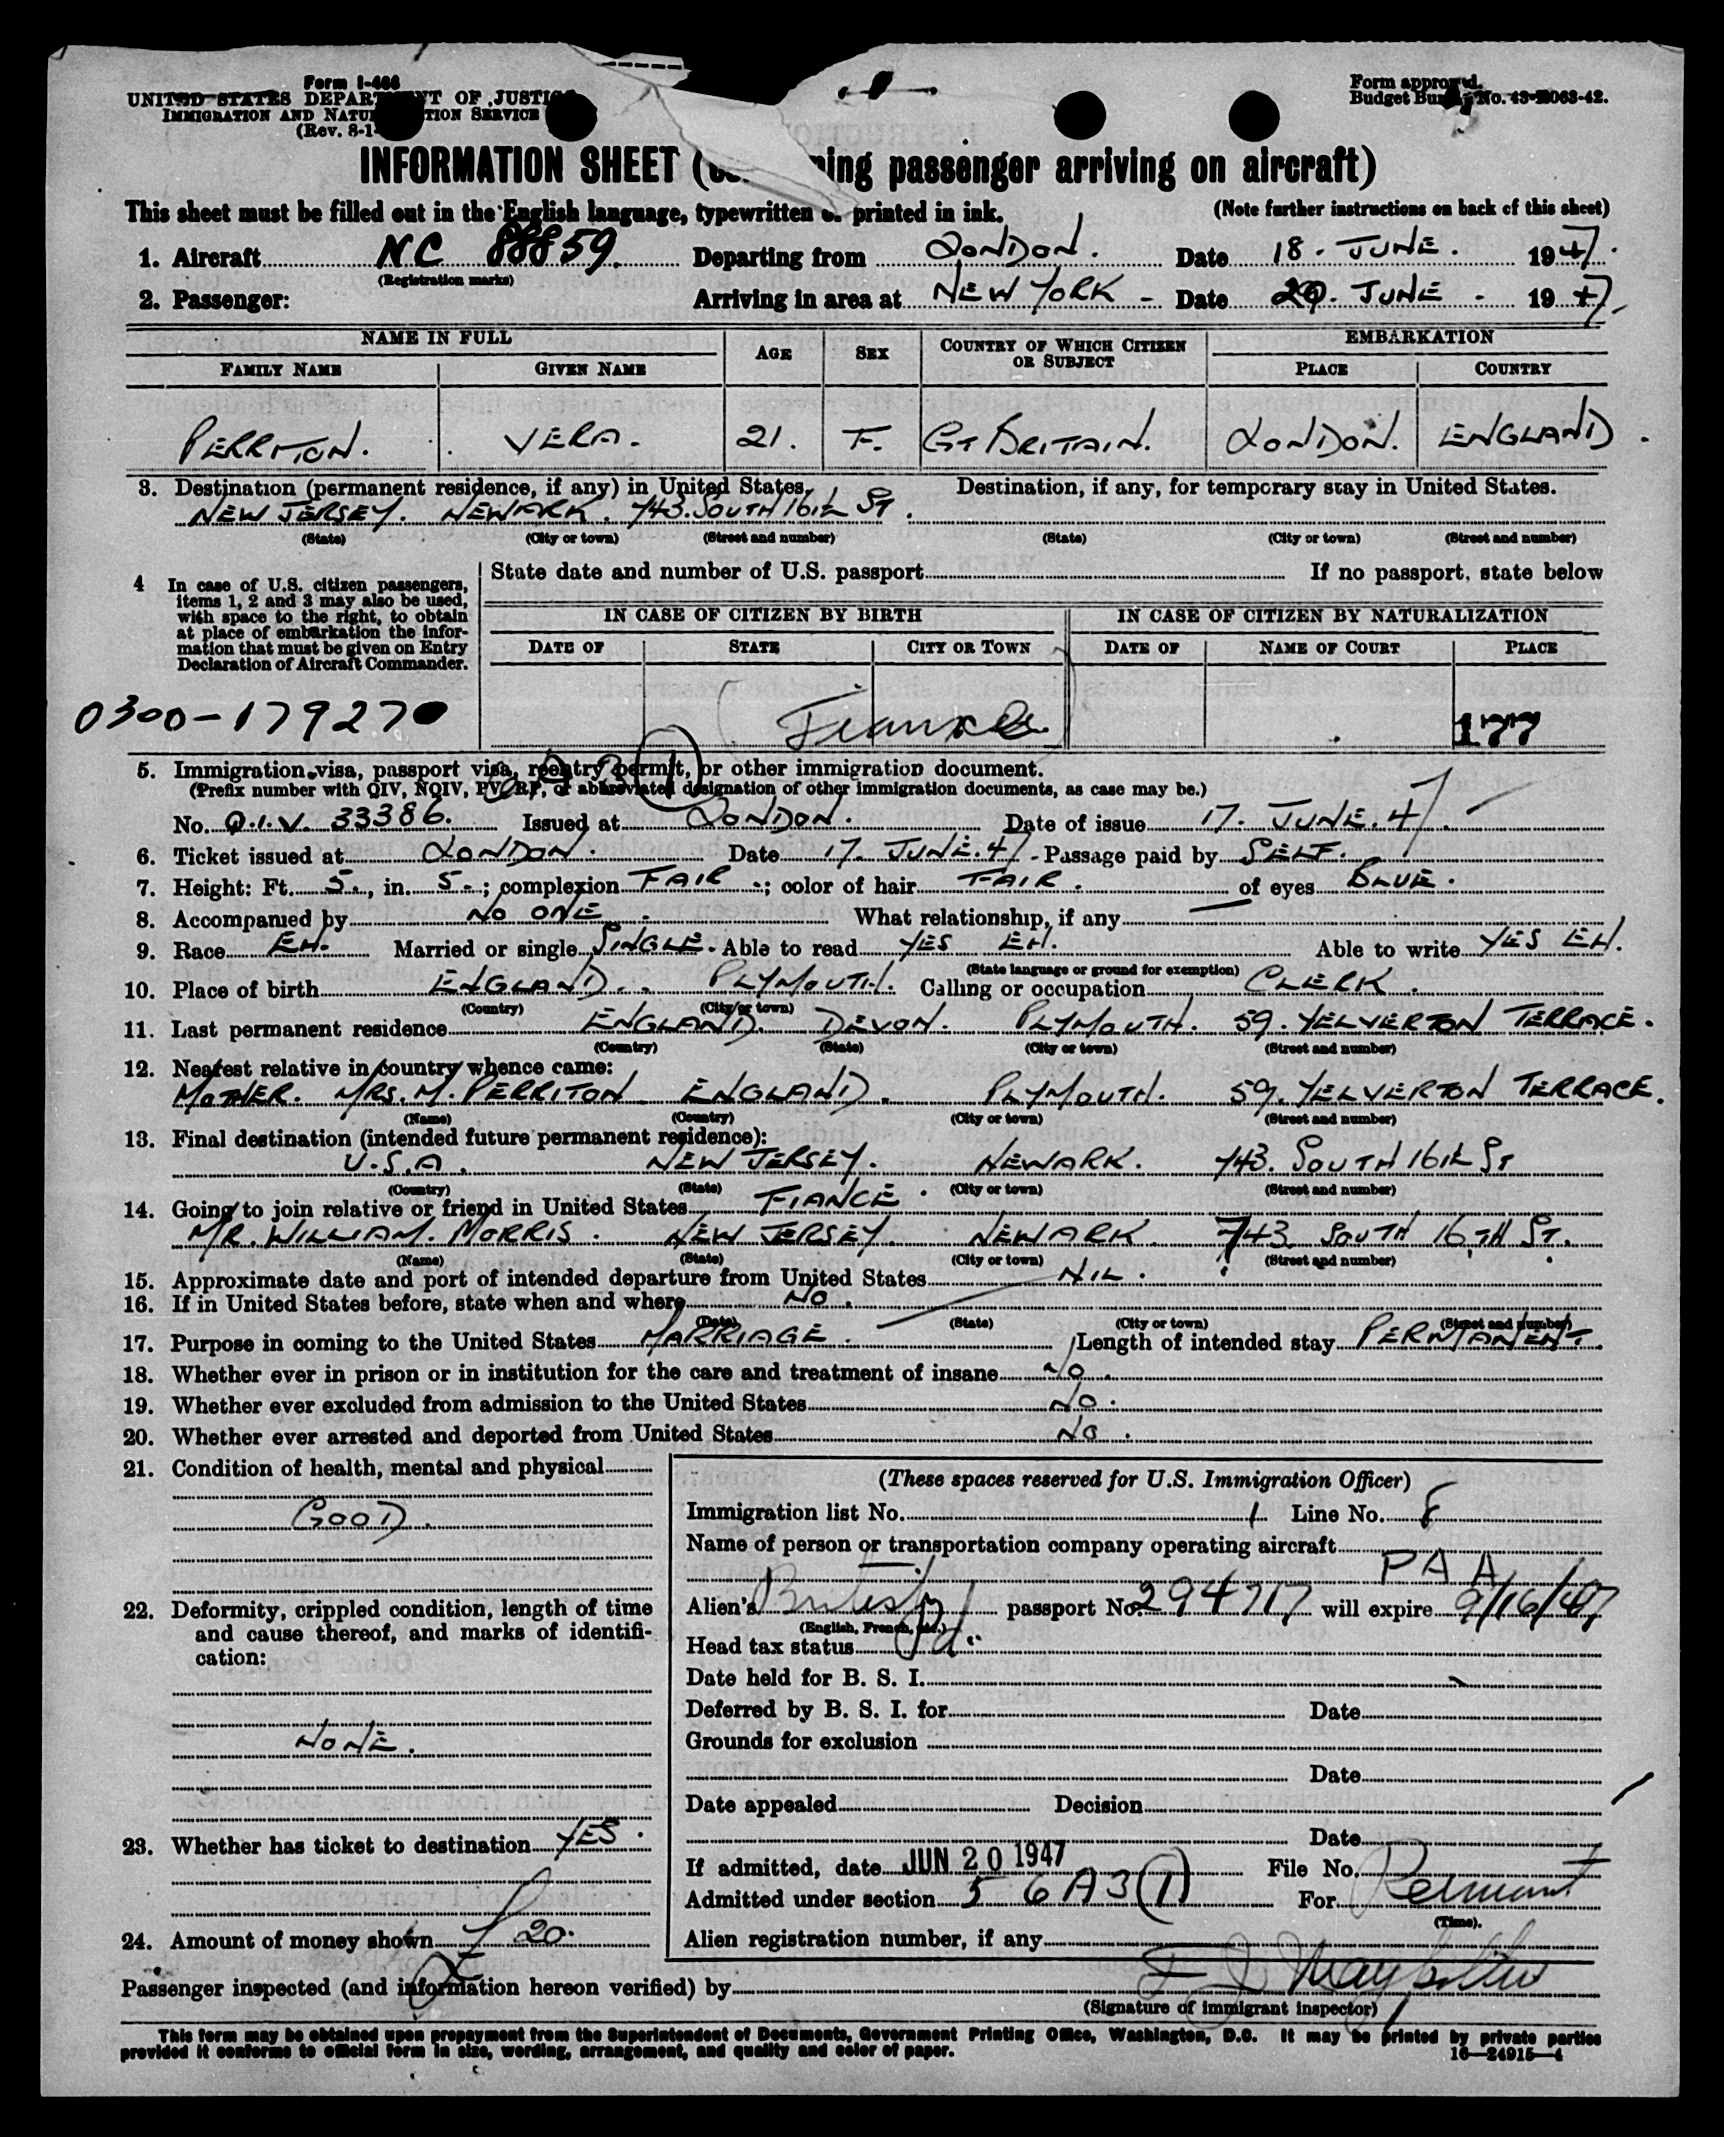 Form I-466
UNITED STATES DEPARTMENT OF JUSTICE
IMMIGRATION AND NATURALIZATION SERVICE
(Rev. 8-1-
Form approved.
Budget Bureau No. 43-R063-42.
INFORMATION SHEET (concerning passenger arriving on aircraft)
This sheet must be filled out in the English language, typewritten or printed in ink. (Note further instructions on back of this sheet)
1. Aircraft NC 88859. Departing from LONDON. Date 18. JUNE. 1947.
(Registration marks)
2. Passenger: Arriving in area at NEW YORK - Date 20. JUNE - 1947.
NAME IN FULL EMBARKATION
FAMILY NAME GIVEN NAME AGE SEX COUNTRY OF WHICH CITIZEN OR SUBJECT PLACE COUNTRY
PERRITON. VERA. 21. F. GT BRITAIN. LONDON. ENGLAND.
3. Destination (permanent residence, if any) in United States. Destination, if any, for temporary stay in United States.
NEW JERSEY. NEWARK. 743. SOUTH 16th ST.
(State) (City or town) (Street and number) (State) (City or town) (Street and number)
4 In case of U.S. citizen passengers, items 1, 2 and 3 may also be used, with space to the right, to obtain at place of embarkation the information that must be given on Entry Declaration of Aircraft Commander.
State date and number of U.S. passport If no passport, state below
IN CASE OF CITIZEN BY BIRTH IN CASE OF CITIZEN BY NATURALIZATION
DATE OF STATE CITY OR TOWN DATE OF NAME OF COURT PLACE
0300-179270 177
5. Immigration visa, passport visa, reentry permit, or other immigration document.
(Prefix number with QIV, NQIV, PV, RP, or abbreviated designation of other immigration documents, as case may be.)
No. Q.I.V. 33386. Issued at LONDON. Date of issue 17. JUNE. 47.
6. Ticket issued at LONDON. Date 17. JUNE. 47 - Passage paid by SELF.
7. Height: Ft. 5., in. 5.; complexion FAIR.; color of hair FAIR. of eyes BLUE.
8. Accompanied by NO ONE. What relationship, if any —
9. Race EH. Married or single SINGLE. Able to read YES EH. Able to write YES EH.
(State language or ground for exemption)
10. Place of birth ENGLAND.. PLYMOUTH. Calling or occupation CLERK.
(Country) (City or town)
11. Last permanent residence ENGLAND. DEVON. PLYMOUTH. 59. YELVERTON TERRACE.
(Country) (State) (City or town) (Street and number)
12. Nearest relative in country whence came:
MOTHER. MRS. M. PERRITON ENGLAND. PLYMOUTH. 59. YELVERTON TERRACE.
(Name) (Country) (City or town) (Street and number)
13. Final destination (intended future permanent residence):
U.S.A. NEW JERSEY. NEWARK. 743. SOUTH 16th ST
(Country) (State) (City or town) (Street and number)
14. Going to join relative or friend in United States FIANCÉ.
MR. WILLIAM. MORRIS. NEW JERSEY. NEWARK. 743. SOUTH 16TH ST.
(Name) (State) (City or town) (Street and number)
15. Approximate date and port of intended departure from United States NIL.
16. If in United States before, state when and where NO.
(Date) (State) (City or town) (Street and number)
17. Purpose in coming to the United States MARRIAGE. Length of intended stay PERMANENT.
18. Whether ever in prison or in institution for the care and treatment of insane NO.
19. Whether ever excluded from admission to the United States NO.
20. Whether ever arrested and deported from United States NO.
21. Condition of health, mental and physical
GOOD.
22. Deformity, crippled condition, length of time and cause thereof, and marks of identification:
NONE.
23. Whether has ticket to destination YES.
24. Amount of money shown £20.
(These spaces reserved for U.S. Immigration Officer)
Immigration list No. 1 Line No. 8
Name of person or transportation company operating aircraft
PAA
Alien's British passport No. 294717 will expire 9/16/47
(English, French, etc.)
Head tax status pd.
Date held for B. S. I.
Deferred by B. S. I. for Date
Grounds for exclusion
Date
Date appealed Decision
Date
If admitted, date JUN 20 1947 File No.
Admitted under section 5 6A3(1) For Permanent
(Time).
Alien registration number, if any
Passenger inspected (and information hereon verified) by
(Signature of immigrant inspector)
This form may be obtained upon prepayment from the Superintendent of Documents, Government Printing Office, Washington, D.C. It may be printed by private parties
provided it conforms to official form in size, wording, arrangement, and quality and color of paper. 16—24915-4